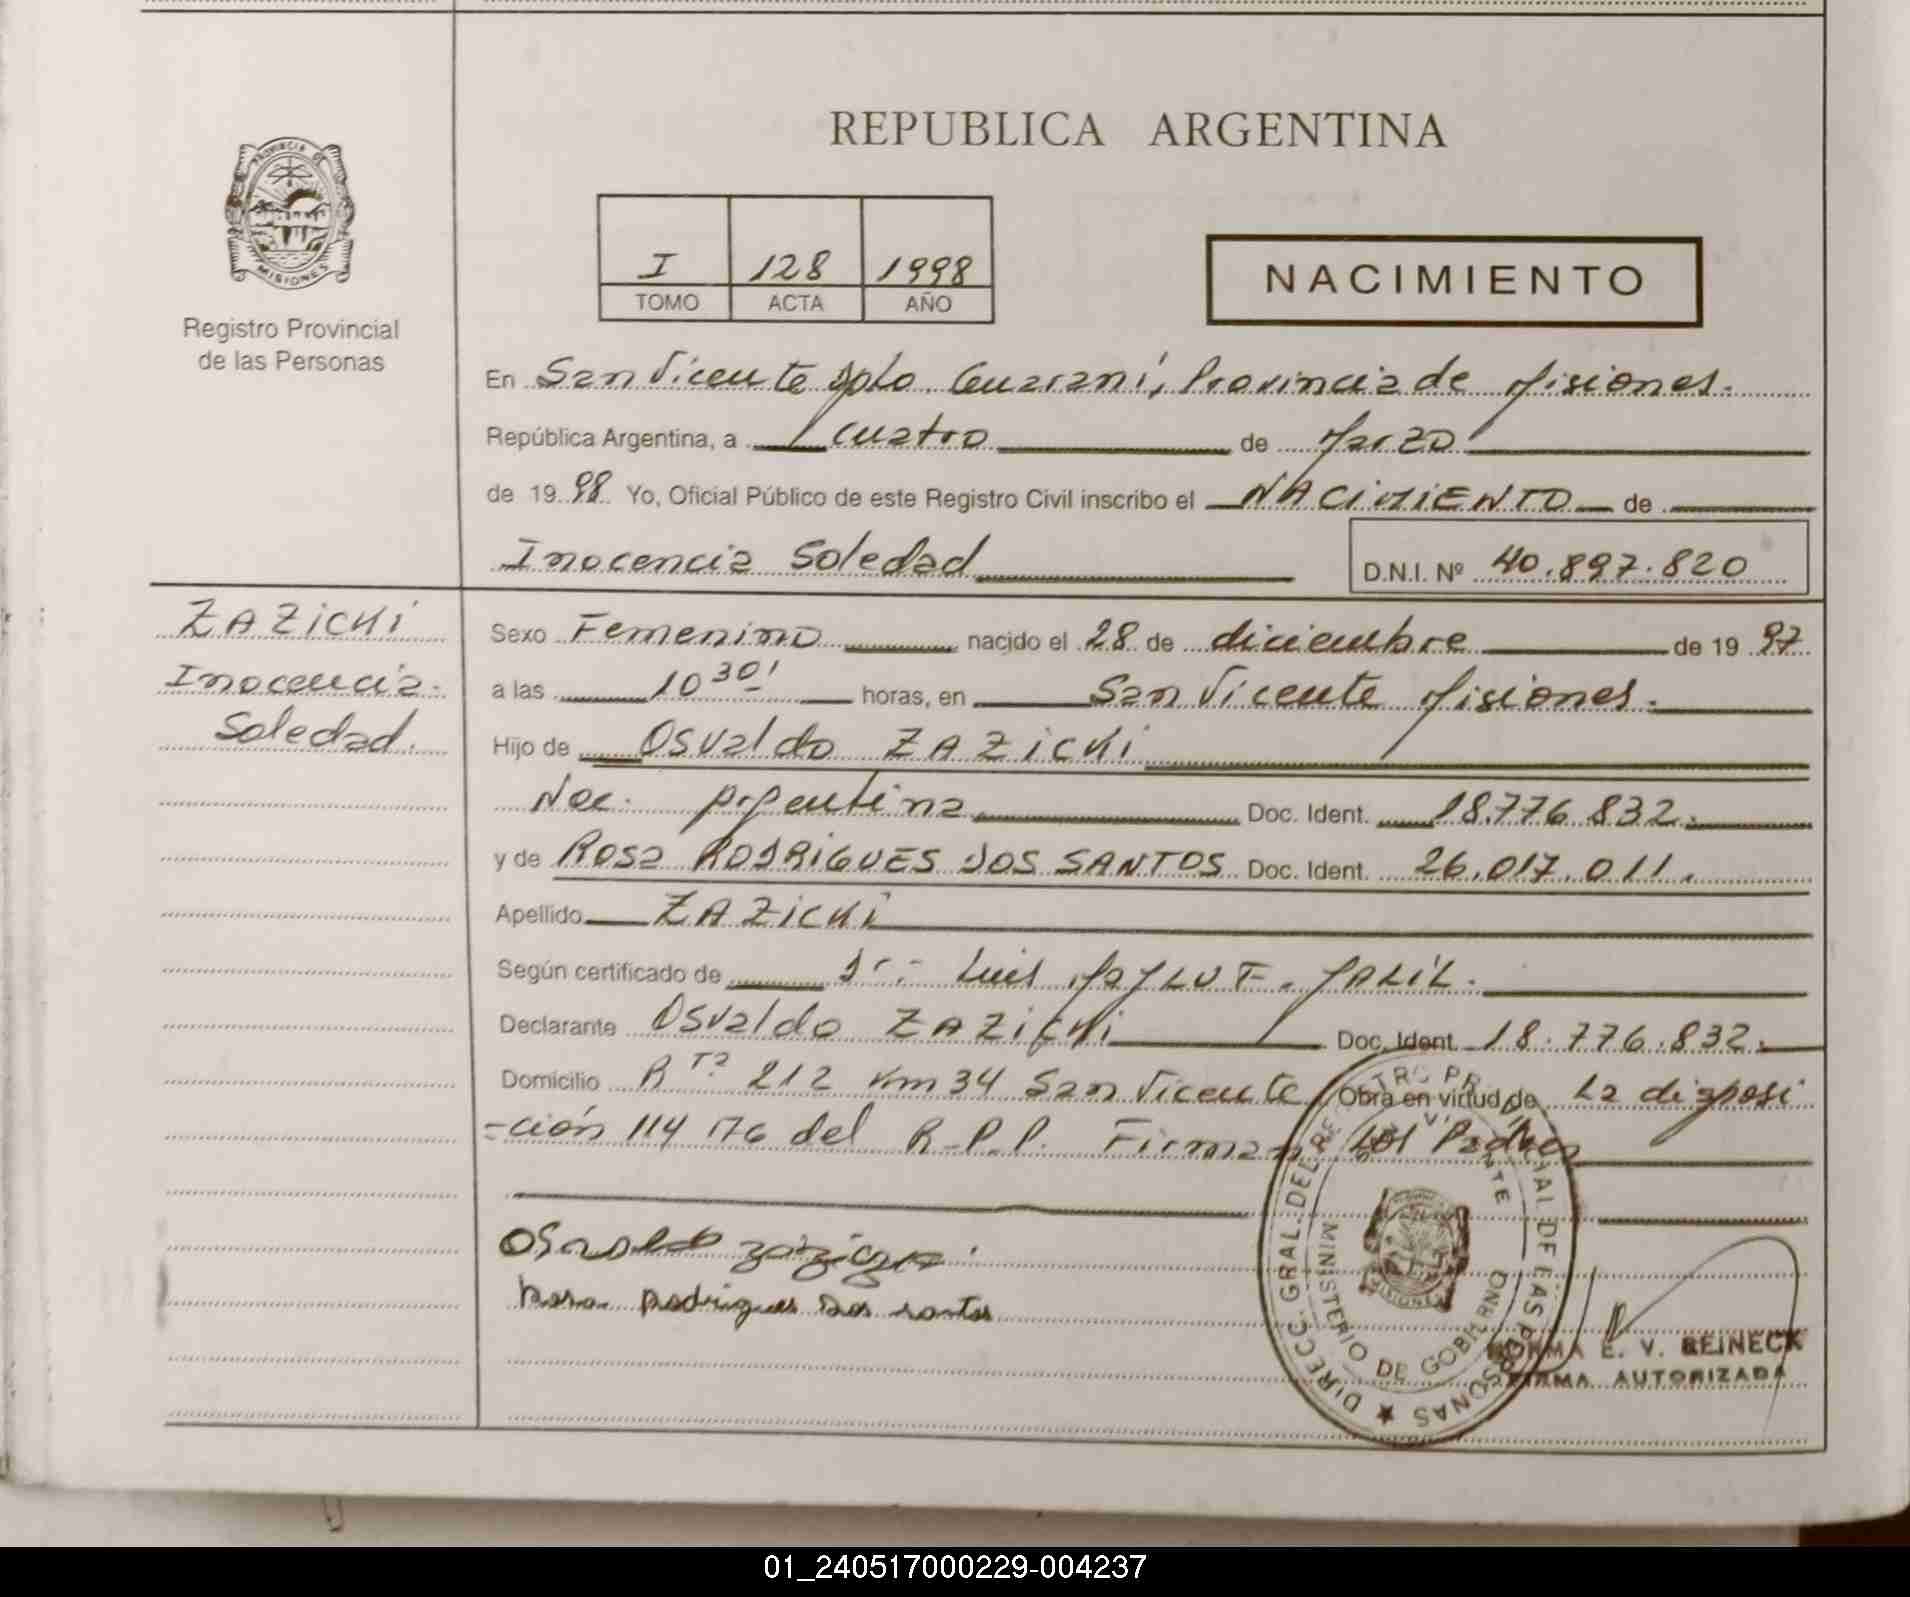 REPUBLICA ARGENTINA
PROVINCIA DE
MISIONES
Registro Provincial
de las Personas
I 128 1998
TOMO ACTA AÑO
NACIMIENTO
En San Vicente Dpto. Guaraní, Provincia de Misiones.
República Argentina, a cuatro de Marzo
de 1998 Yo, Oficial Público de este Registro Civil inscribo el NACIMIENTO de
Inocencia Soledad D.N.I. Nº 40.897.820
ZAZICKI
Inocencia
Soledad.
Sexo Femenino nacido el 28 de diciembre de 1997
a las 10 30' horas, en San Vicente Misiones.
Hijo de Osvaldo ZAZICKI
Nac. Argentina Doc. Ident. 18.776.832.
y de Rosa RODRIGUES DOS SANTOS Doc. Ident. 26.017.011.
Apellido ZAZICKI
Según certificado de Dr. Luis
Declarante Osvaldo ZAZICKI Doc. Ident. 18.776.832.
Domicilio Rta 212 Km 34 San Vicente Obra en virtud de La disposi
-ción 114/76 del R.P.P. Firman Los Padres
Osvaldo
Rosa rodrigues dos santos
DIRECC. GRAL. DEL REGISTRO PROVINCIAL DE LAS PERSONAS
SAN VICENTE
MINISTERIO DE GOBIERNO
MISIONES
NORMA E. V. REINECK
FIRMA AUTORIZADA
01_240517000229-004237